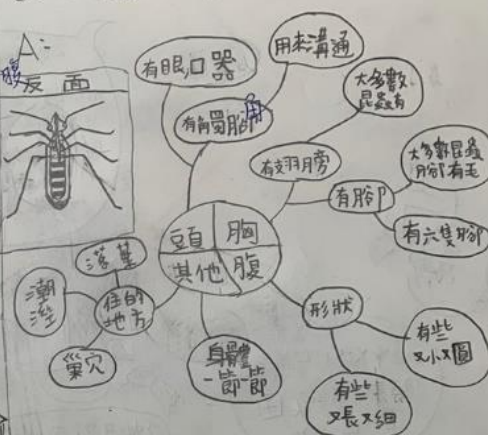 A:
腹面
有眼,口器
用來溝通
有觸腳用
大多數
昆蟲有
有翅膀
大多數昆蟲
腳有毛
有腳
有六隻腳
頭
胸
其他
腹
落葉
潮溼
住的
地方
巢穴
身體
一節一節
形狀
有些
又小又圓
有些
又長又細